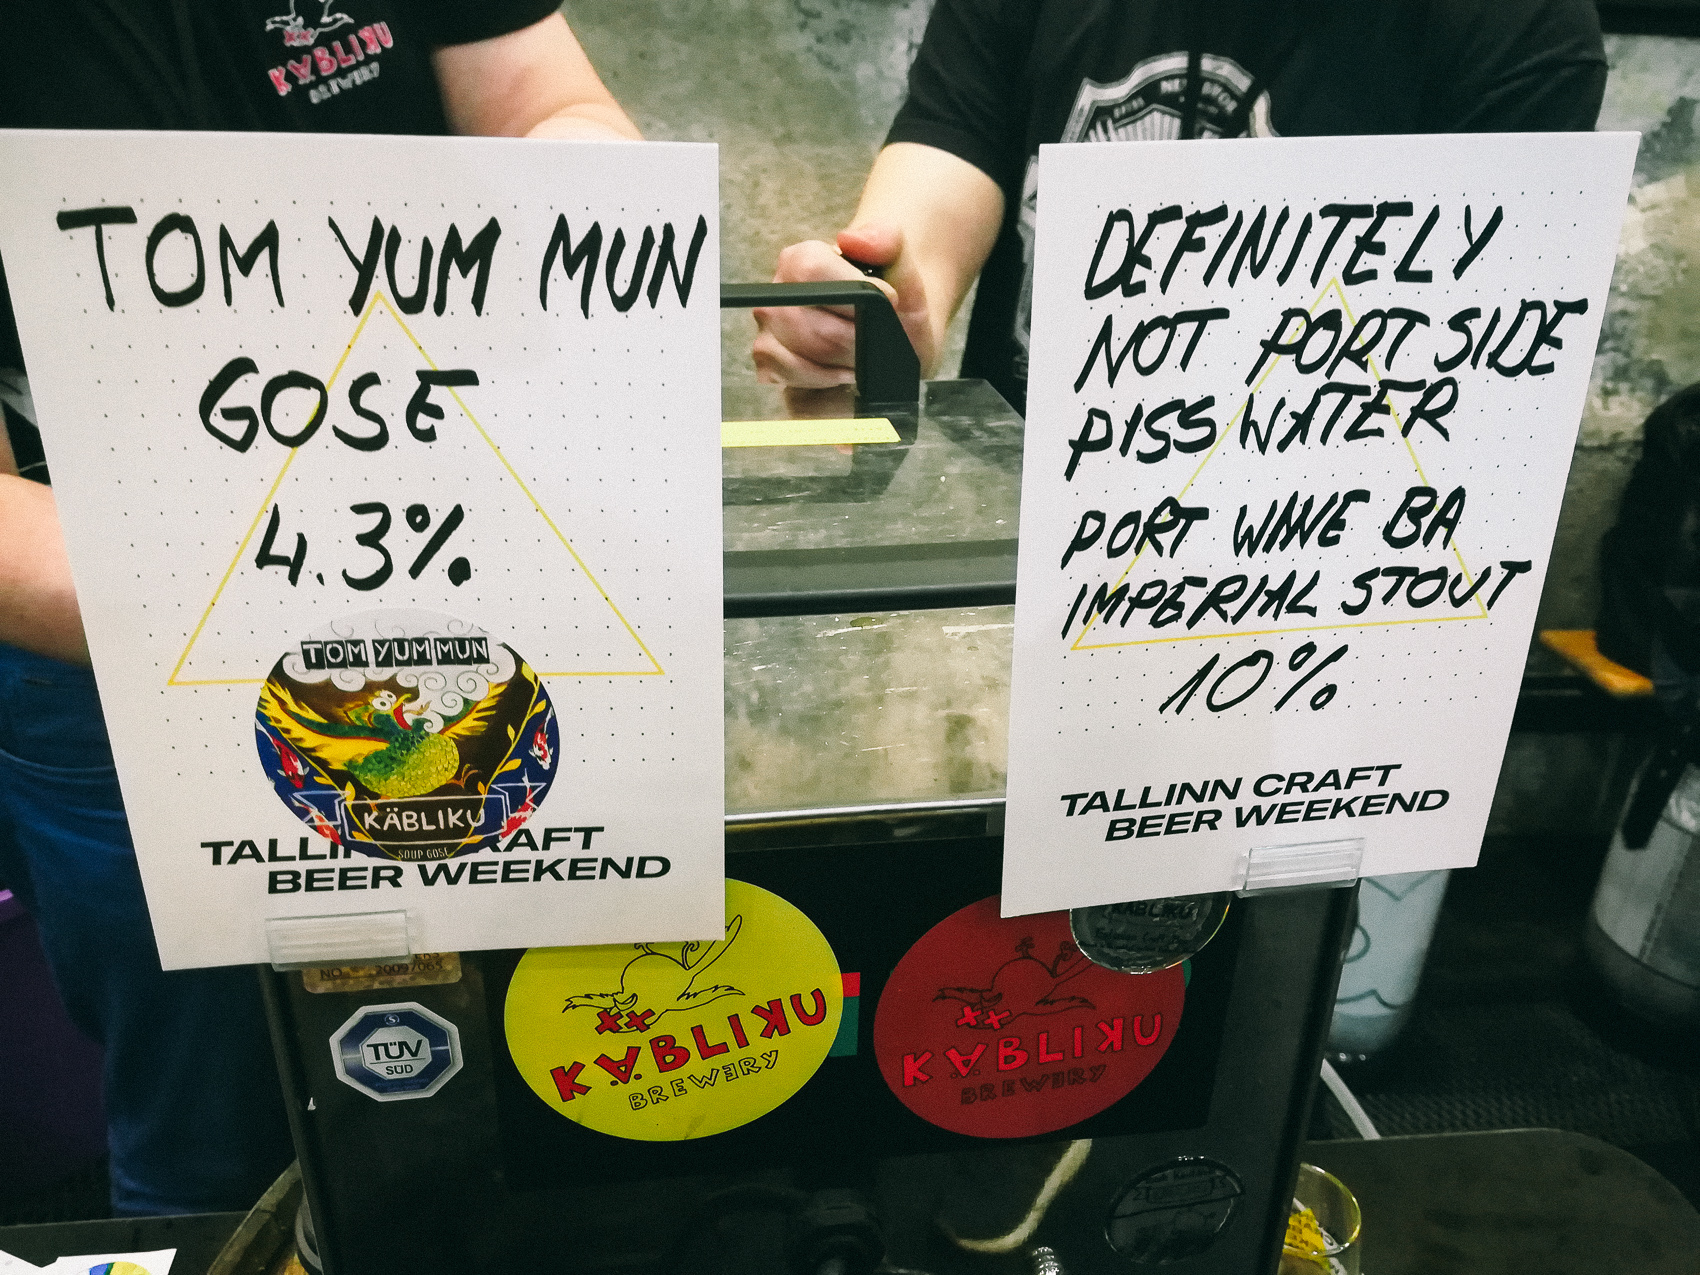 KÄBLIKU
BREWERY
TOM YUM MUN
GOSE
4.3%
TOM YUM MUN
KÄBLIKU
SOUP GOSE
TALLI RAFT
BEER WEEKEND
DEFINITELY
NOT PORT SIDE
PISS WATER
PORT WINE BA
IMPERIAL STOUT
10%
TALLINN CRAFT
BEER WEEKEND
NO. 2009/065
TÜV
SÜD
KÄBLIKU
BREWERY
KÄBLIKU
BREWERY
KÄBLIKU